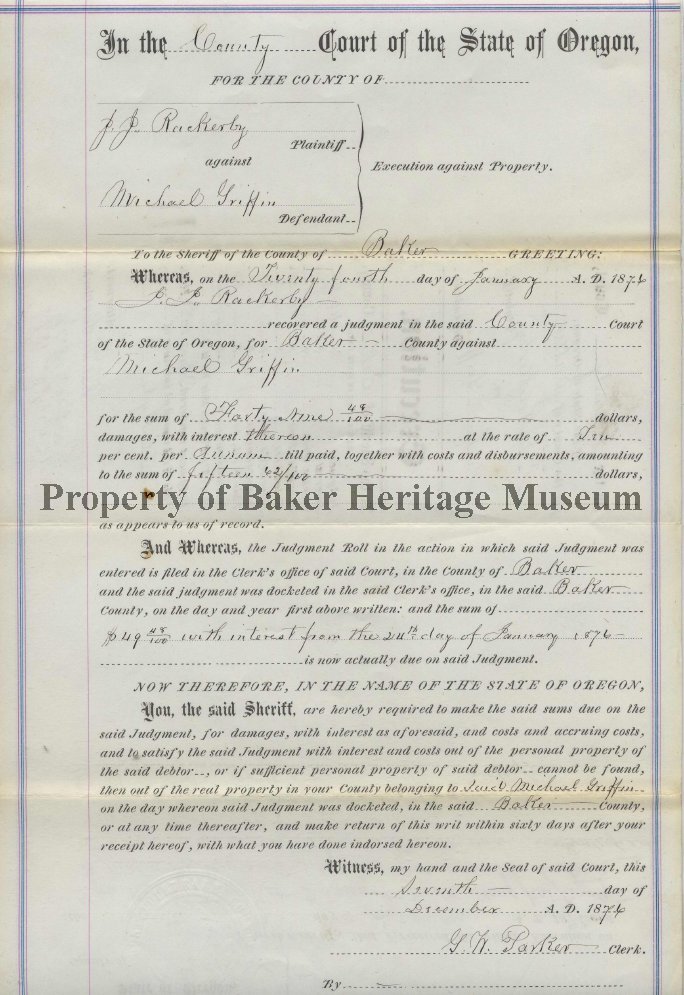 In the County Court of the State of Oregon,
FOR THE COUNTY OF
J. J. Rackerby
Plaintiff
against
Execution against Property.
Michael Griffin
Defendant
To the Sheriff of the County of Baker GREETING:
Whereas, on the Twenty fourth day of January A. D. 1876
J. J. Rackerby
recovered a judgment in the said County Court
of the State of Oregon, for Baker County against
Michael Griffin
for the sum of Forty Nine 48/100 dollars,
damages, with interest thereon at the rate of Ten
per cent. per Annum till paid, together with costs and disbursements, amounting
to the sum of fifteen 62/100 dollars,
Property of Baker Heritage Museum
as appears to us of record.
And Whereas, the Judgment Roll in the action in which said Judgment was
entered is filed in the Clerk's office of said Court, in the County of Baker
and the said judgment was docketed in the said Clerk's office, in the said Baker
County, on the day and year first above written: and the sum of
$49 48/100 with interest from the 24th day of January 1876
is now actually due on said Judgment.
NOW THEREFORE, IN THE NAME OF THE STATE OF OREGON,
You, the said Sheriff, are hereby required to make the said sums due on the
said Judgment, for damages, with interest as aforesaid, and costs and accruing costs,
and to satisfy the said Judgment with interest and costs out of the personal property of
the said debtor, or if sufficient personal property of said debtor cannot be found,
then out of the real property in your County belonging to said Michael Griffin
on the day whereon said Judgment was docketed, in the said Baker County,
or at any time thereafter, and make return of this writ within sixty days after your
receipt hereof, with what you have done indorsed hereon.
Witness, my hand and the Seal of said Court, this
Seventh day of
December A. D. 1876
G. W. Parker Clerk.
By